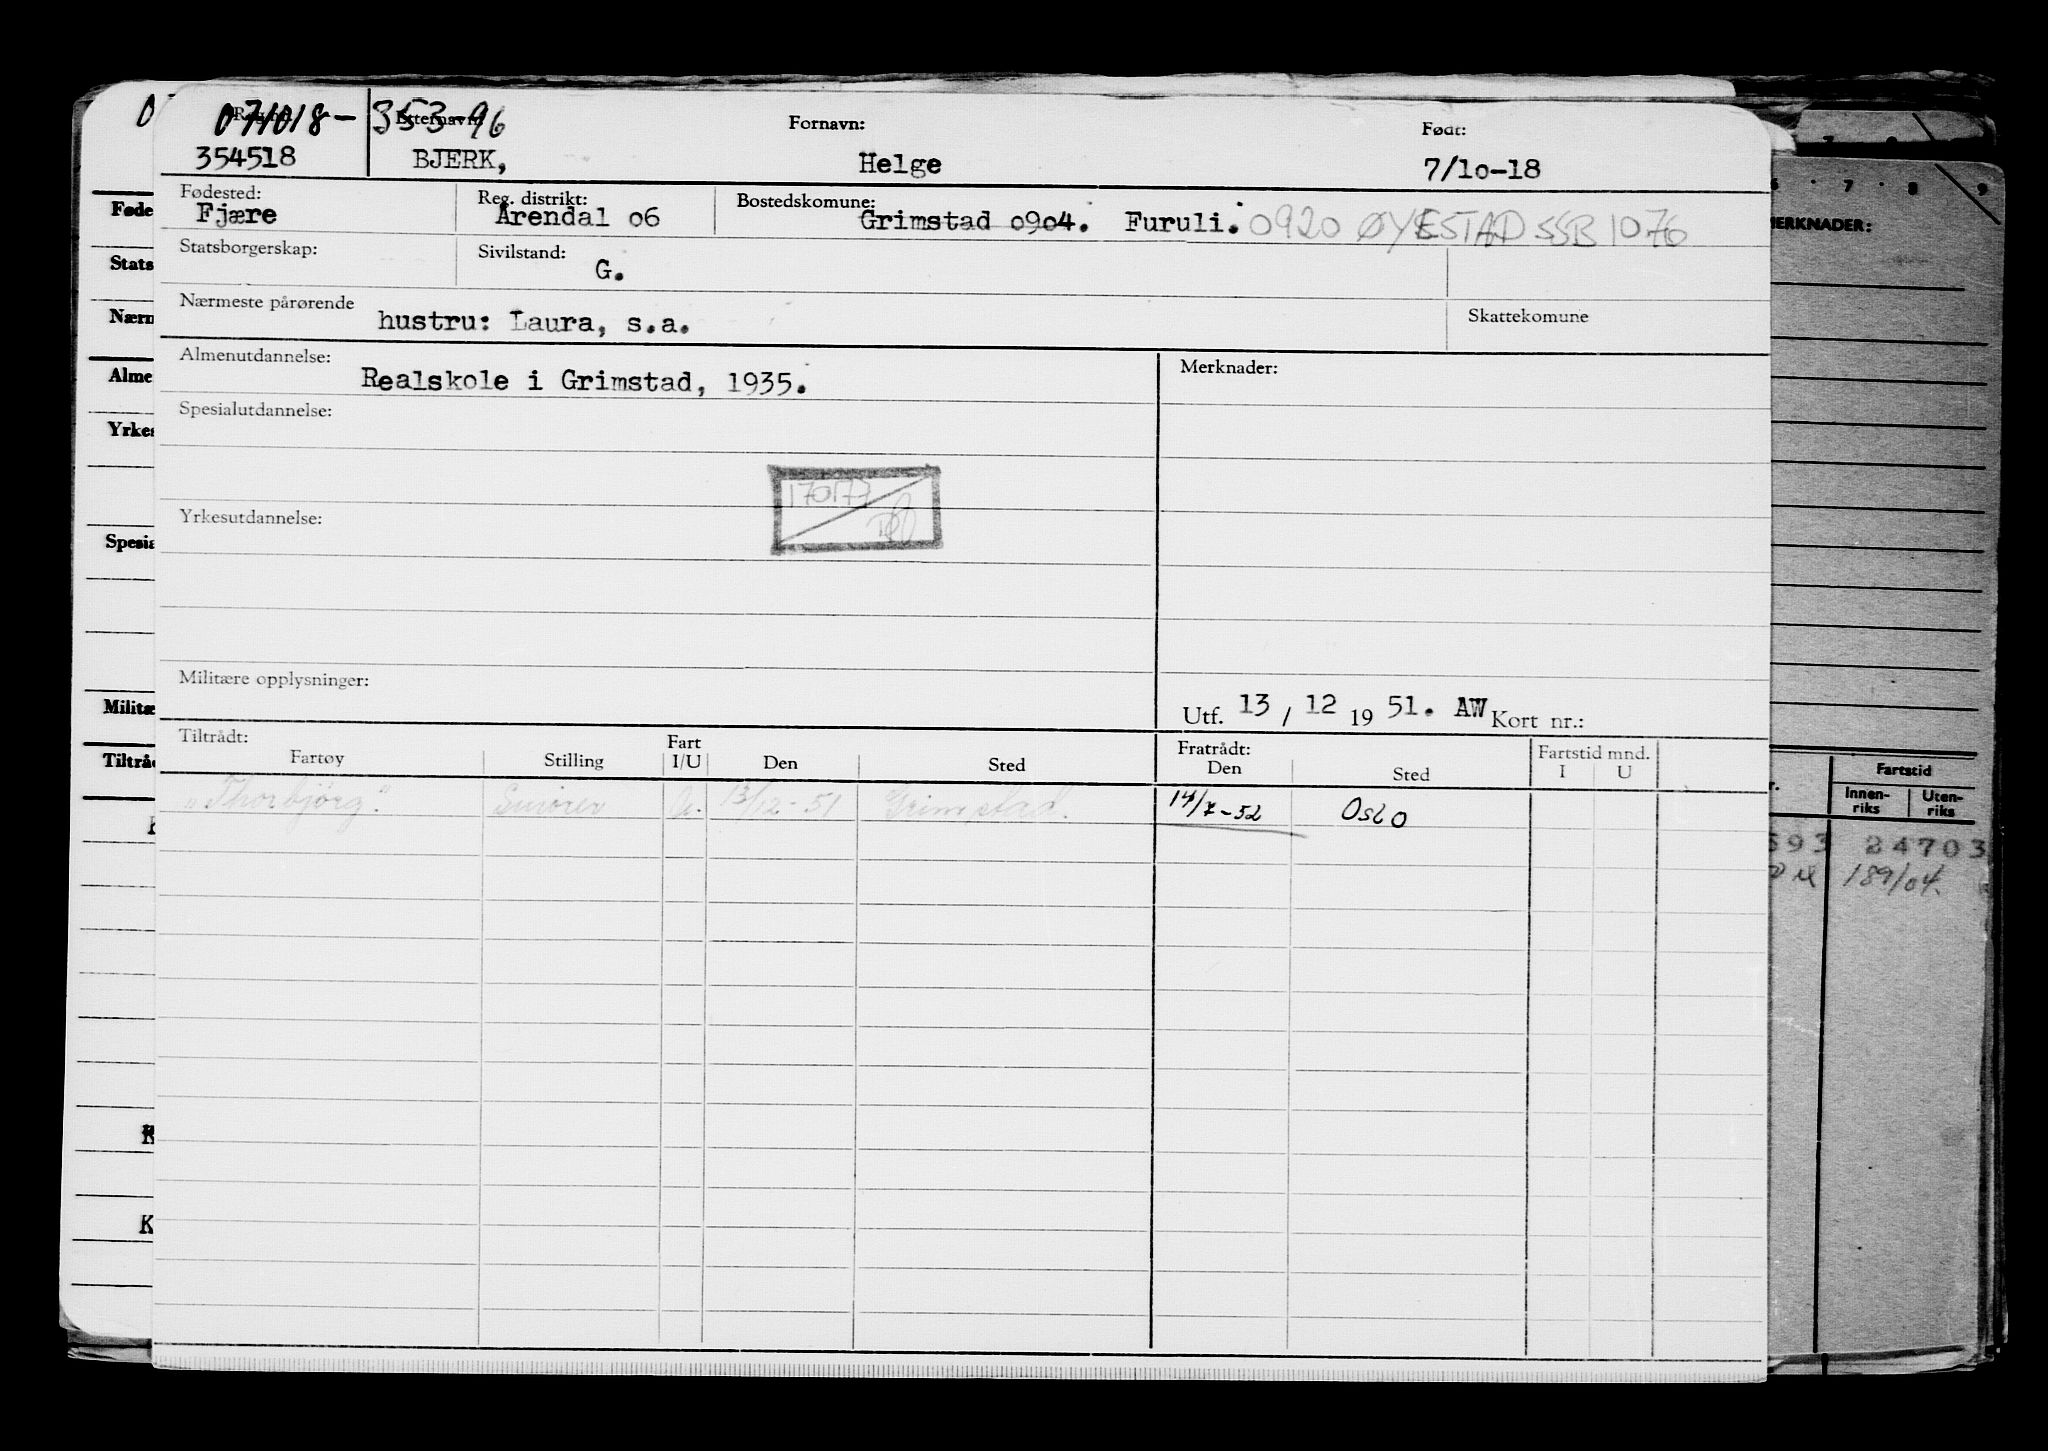 071018-353-96
Reg. nr. Etternavn: Fornavn: Født:
354518 BJERK, Helge 7/10-18
Fødested: Reg. distrikt: Bostedskomune:
Fjære Arendal 06 Grimstad 0904. Furuli. 0920 ØYESTAD SSB 1076
Statsborgerskap: Sivilstand: G.
Nærmeste pårørende hustru: Laura, s.a. Skattekomune
Almenutdannelse: Merknader:
Realskole i Grimstad, 1935.
Spesialutdannelse:
170177
Yrkesutdannelse:
Militære opplysninger:
Utf. 13 / 12 19 51. AW Kort nr.:
Tiltrådt: Fratrådt: Fartstid mnd.
Fartøy Stilling Fart I/U Den Sted Den Sted I U
"Thorbjörg". Smörer 13/12-51 Grimstad. 14/7-52 Oslo
Føde
Stats
Nærm
Alme
Yrkes
Spesia
Militæ
Tiltråd
K
6 7 8 9
MERKNADER:
Fartstid
Innen-riks Uten-riks
593 24703
189/04.